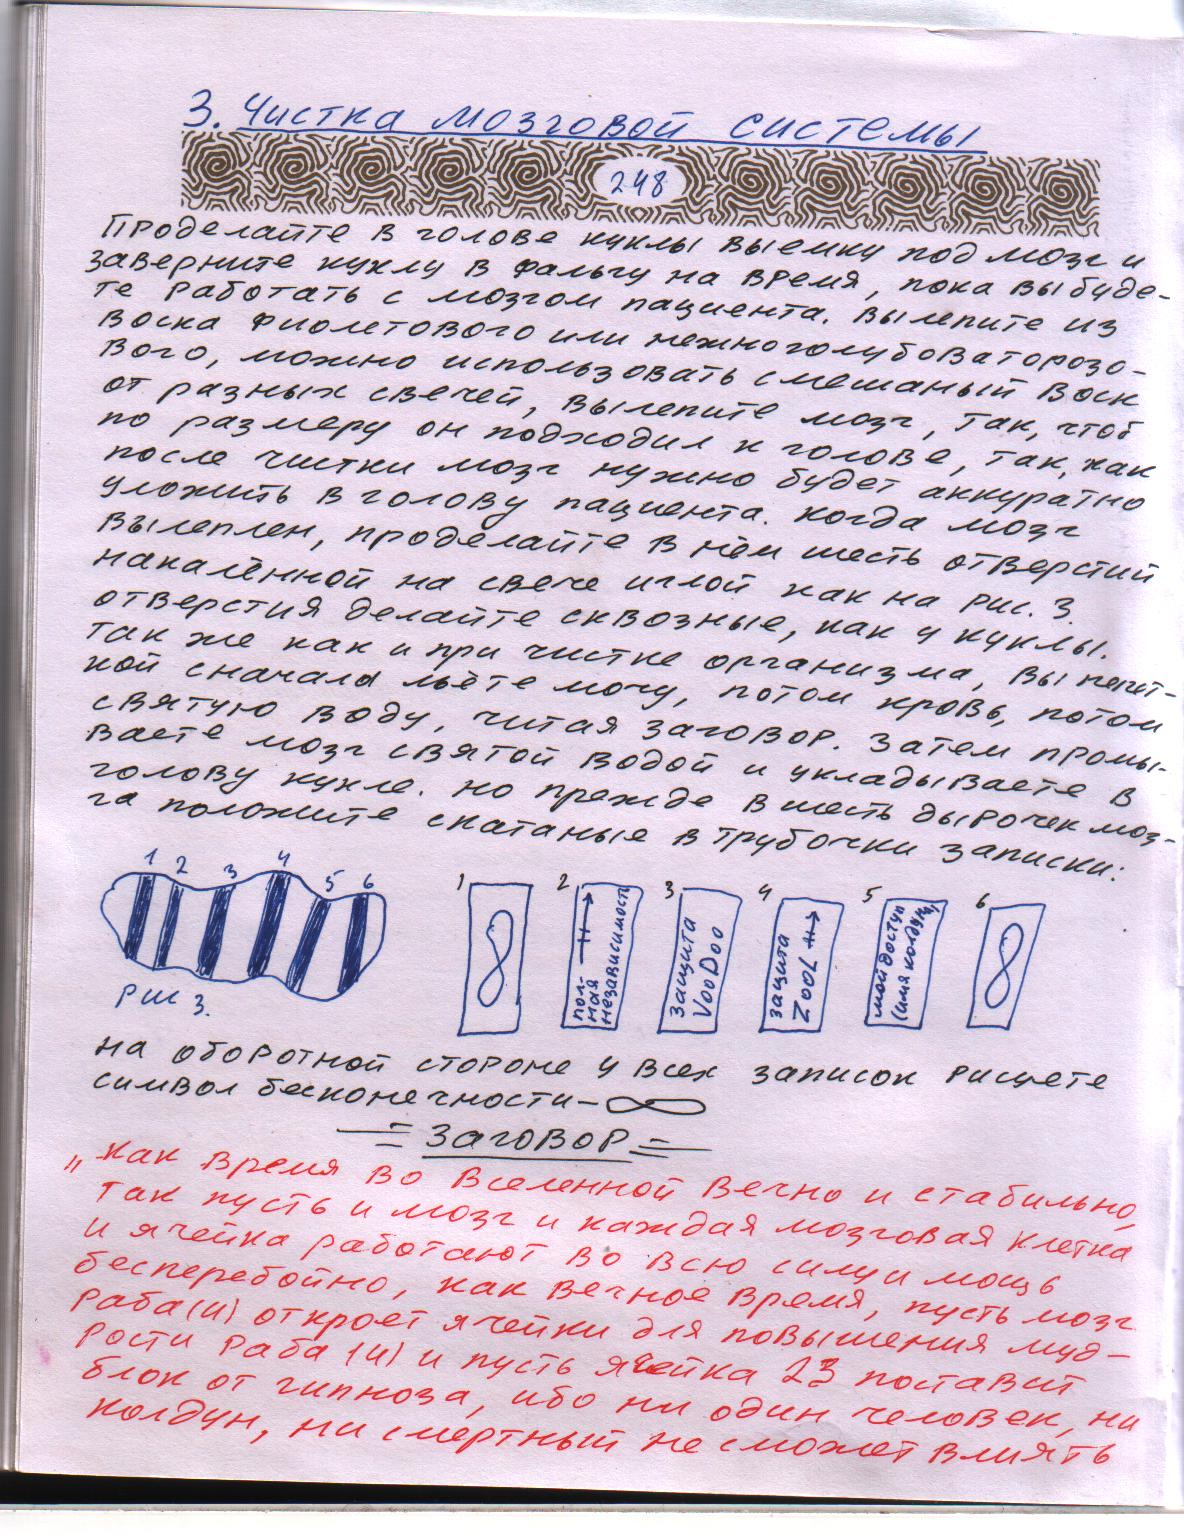 3. Чистка мозговой системы
248
Проделайте в голове куклы выемку под мозг и
заверните куклу в фальгу на время, пока вы буде-
те работать с мозгом пациента. Вылепите из
воска фиолетового или нежноголубоваторозо-
вого, можно использовать смешаный воск
от разных свечей, вылепите мозг, так, чтоб
по размеру он подходил к голове, так, как
после чистки мозг нужно будет аккуратно
уложить в голову пациента. Когда мозг
вылеплен, проделайте в нём шесть отверстий
накалённой на свече иглой как на рис. 3.
отверстия делайте сквозные, как у куклы.
так же как и при чистке организма, вы пепет-
кой сначала льёте мочу, потом кровь, потом
святую воду, читая заговор. Затем промы-
ваете мозг святой водой и укладываете в
голову кукле. Но прежде в шесть дырочек моз-
га положите скатаные в трубочки записки:
1 2 3 4 5 6
Рис 3.
1 ∞
2 пол-
ная
независимость
3 защита
VooDoo
4 защита
ZOOL
5 мой доступ
(имя колдуна)
6 ∞
на оборотной стороне у всех записок рисуете
символ бесконечности – ∞
= Заговор =
„ Как время во Вселенной вечно и стабильно,
так пусть и мозг и каждая мозговая клетка
и ячейка работают во всю силу и мощь
бесперебойно, как вечное время, пусть мозг
раба(и) откроет ячейки для повышения муд-
рости раба (и) и пусть ячейка 23 поставит
блок от гипноза, ибо ни один человек, ни
колдун, ни смертный не сможет влиять